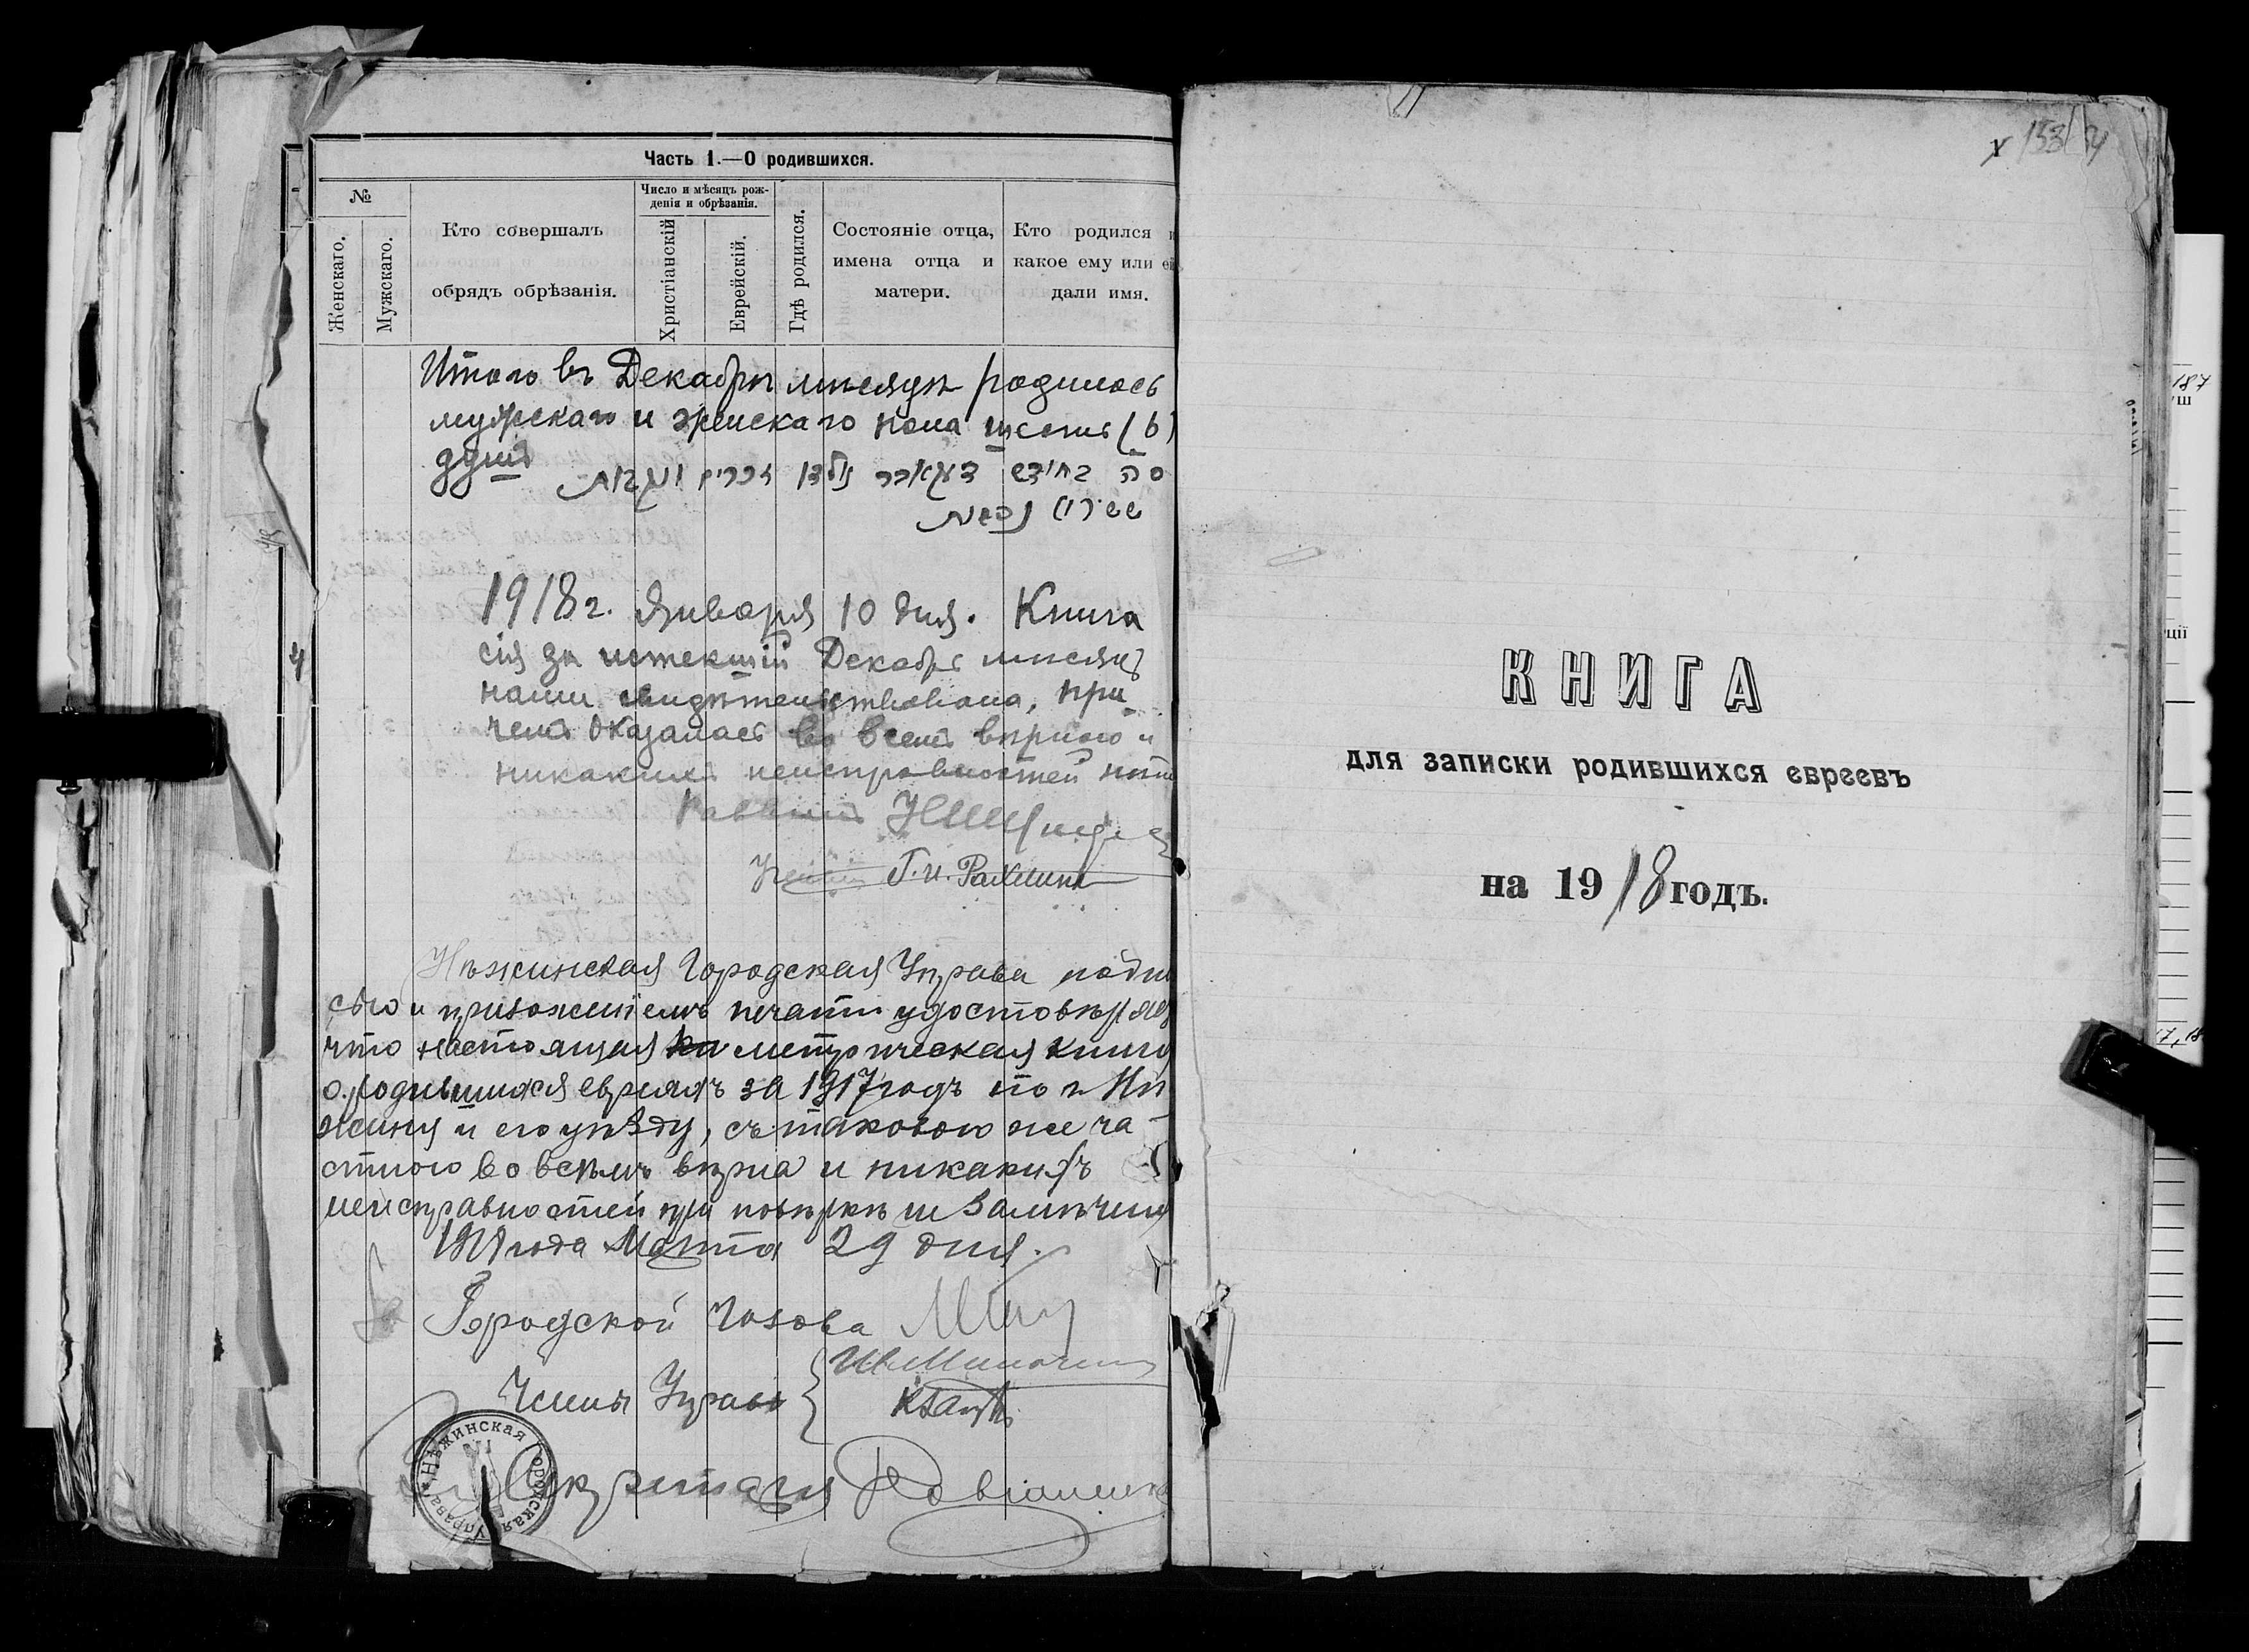 Часть 1.—О родившихся.
№
Женскаго.
Мужскаго.
Кто совершалъ
обрядъ обрѣзанія.
Число и мѣсяцъ рож-
денія и обрѣзанія.
Христіанскій
Еврейскій.
Гдѣ родился.
Состояніе отца,
имена отца и
матери.
Кто родился и
какое ему или ей
дали имя.
Итого въ Декабрѣ мѣсяцѣ родилось
мужскаго и женскаго пола шесть (6)
душъ
סה בחודש דעקאבר נולדו זכרים ונקבות
ששה נפשות
1918 г. Января 10 дня. Книга
сія за истекшій Декабрь мѣсяцъ
нами свидѣтельствована, при
чемъ оказалась во всемъ вѣрною и
никакихъ неисправностей нѣтъ
Раввинъ
Г. И. Рахлинъ
Нѣжинская Городская Управа подпи
сью и приложеніемъ печати удостовѣряетъ
что настоящая метрическая книга
о родившихся евреяхъ за 1917 годъ по г. Нѣ
жину и его уѣзду, съ таковою же ча-
стною во всемъ вѣрна и никакихъ
неисправностей при повѣркѣ не замѣчено
1918 года Марта 29 дня.
Городской Голова
Члены Управы
Секретарь
Нѣжинская Городская Управа
153
КНИГА
для записки родившихся евреевъ
на 1918 годъ.
187